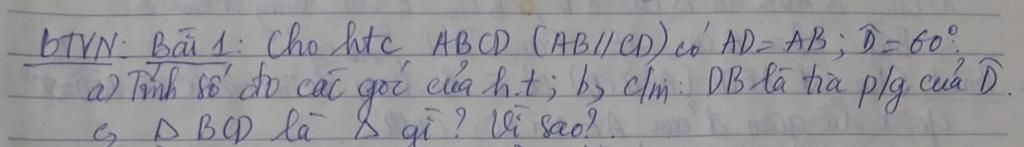 BTVN: Bài 1: Cho htc ABCD (AB//CD) có AD=AB; D̂=60°.
a) Tính số đo các góc của h.t; b, c/m: DB là tia p/g của D̂.
c, Δ BCD là Δ gì? Vì sao?.